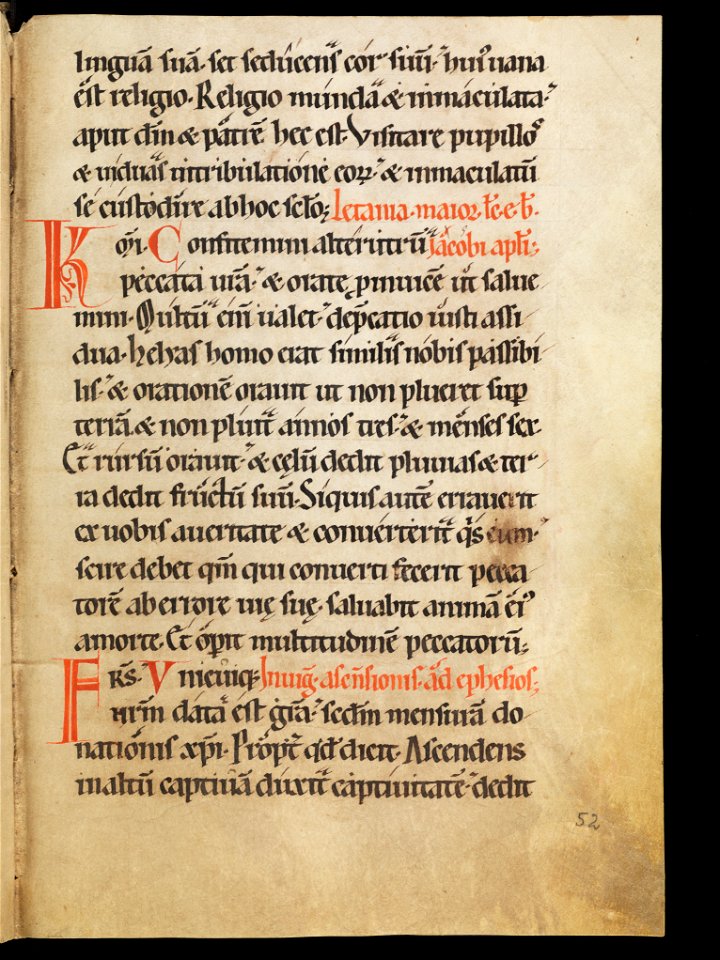 linguā suā· set seducens cor suū· huiꝰ uana
ēst religio· Religio munda & inmaculata·
aput dm̄ & patrē hec est· Visitare pupillos
& uiduas intribulatione eoꝝ· & inmaculatū
se custodire abhoc sclō; Letania· maior· l̄c·e·b̄·
Km̄i· Confitemini alterutrū Jacobi apli;
peccata ur̄a· & orate ꝓinuicē ut salue
mini· Multū eni ualet· dep̄catio iusti assi
dua· helyas homo erat similis nobis passibi
lis· & orationē orauit ut non plueret sup̄
terrā· & non pluit annos tres· & menses sex·
Et rursū orauit· & cęlū dedit pluuias & ter
ra dedit fructū suū· Siquis autē errauerit
ex uobis aueritate & conuerterit qis eum·
scire debet qm̄ qui conuerti fecerit pecca
torē aberrore uię suę· saluabit animā eiꝰ
amorte· Et op̄it multitudinē peccatorū;
FRS̄· Vnicuiqꝫ Inuiḡ· asensionis· ad ephesios;
nr̄m data ēst gr̄a· secdm̄ mensurā do
nationis xpi· Propt̄ qd dicit· Ascendens
inaltū captiuā duxit captiuitatē· dedit
52